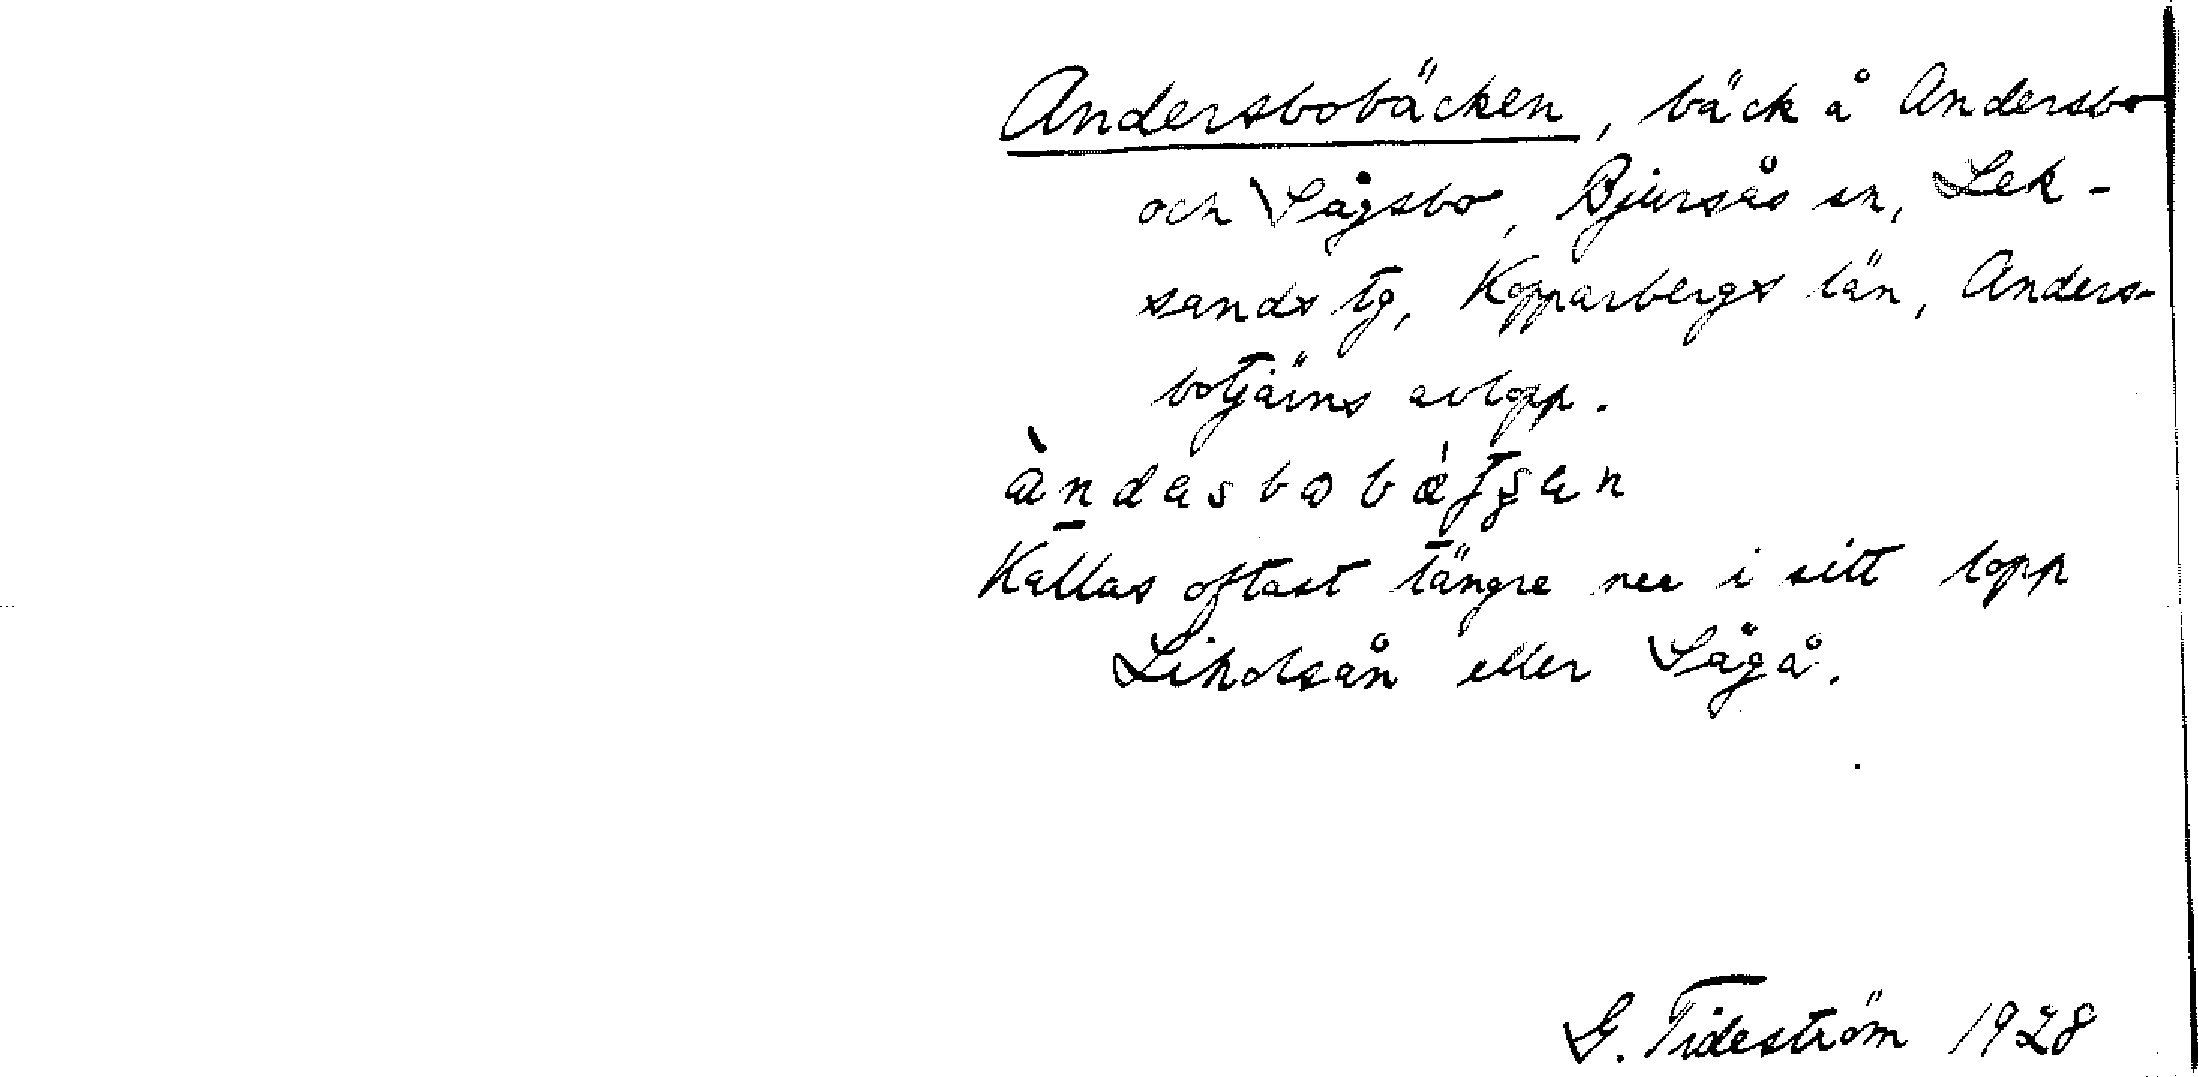 Andersbobäcken, bäck å Andersbo
och Sågsbo, Bjursås sn, Lek-
sands tg, Kopparbergs län, Anders-
botjärns avlopp.
àndasbobǽtʃan
Kallas oftast längre ner i sitt lopp
Likolsån eller Sågå.
G. Tideström 1928